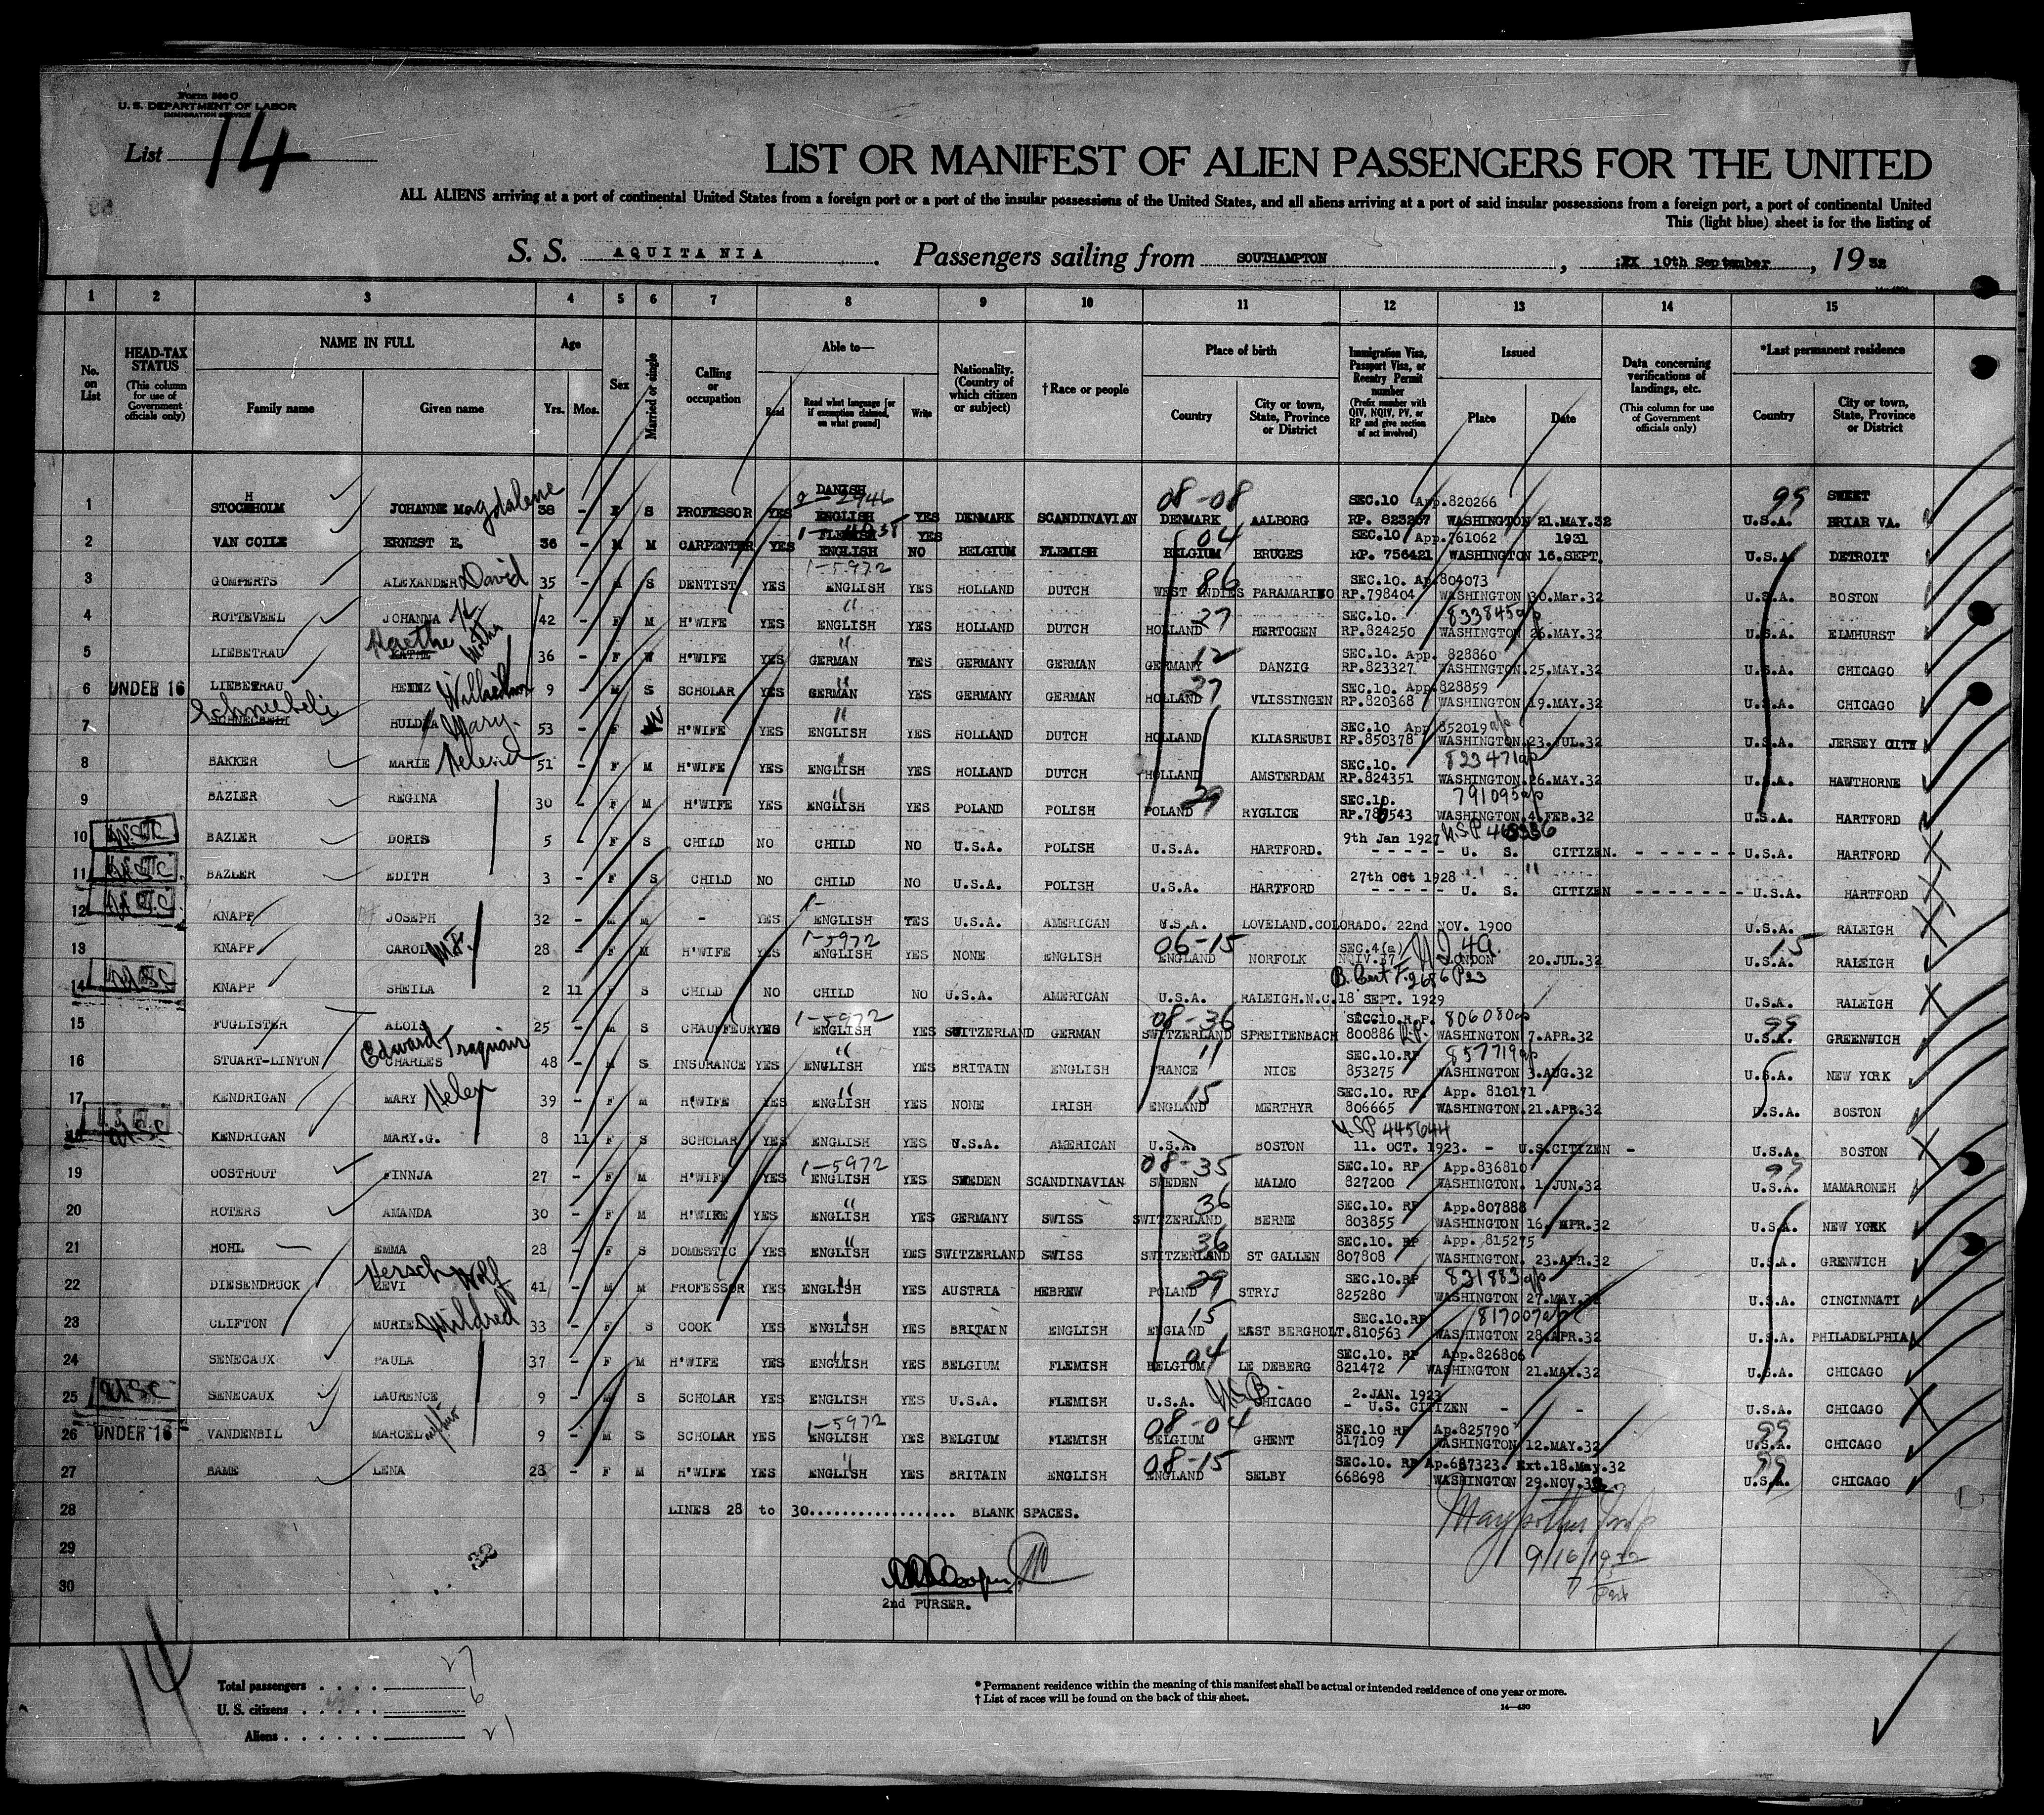 Form 500 C
U. S. DEPARTMENT OF LABOR
IMMIGRATION SERVICE
List 14
LIST OR MANIFEST OF ALIEN PASSENGERS FOR THE UNITED
ALL ALIENS arriving at a port of continental United States from a foreign port or a port of the insular possessions of the United States, and all aliens arriving at a port of said insular possessions from a foreign port, a port of continental United
This (light blue) sheet is for the listing of
S. S. AQUITANIA. Passengers sailing from SOUTHAMPTON, 10th September, 1932
1 2 3 4 5 6 7 8 9 10 11 12 13 14 15
No. on List
HEAD-TAX STATUS (This column for use of Government officials only)
NAME IN FULL Family name Given name
Age Yrs. Mos.
Sex
Married or single
Calling or occupation
Able to— Read Read what language [or if exemption claimed, on what ground] Write
Nationality. (Country of which citizen or subject)
† Race or people
Place of birth Country City or town, State, Province or District
Immigration Visa, Passport Visa, or Reentry Permit number (Prefix number with QIV, NQIV, PV, or RP and give section of act involved)
Issued Place Date
Data concerning verifications of landings, etc. (This column for use of Government officials only)
*Last permanent residence Country City or town, State, Province or District
1 STOCKHOLM H JOHANNE Magdalene 38 - F S PROFESSOR YES DANISH 2-2946 ENGLISH YES DENMARK SCANDINAVIAN 08-08 DENMARK AALBORG SEC.10 App.820266 RP. 823267 WASHINGTON 21.MAY.32 99 U.S.A. SWEET BRIAR VA.
2 VAN COILE ERNEST E. 36 - M M CARPENTER YES FLEMISH ENGLISH YES NO BELGIUM FLEMISH 04 BELGIUM BRUGES SEC.10 App.761062 1931 RP. 756421 WASHINGTON 16.SEPT. U.S.A. DETROIT
3 GOMPERTS ALEXANDER David 35 - M S DENTIST YES 1-5972 ENGLISH YES HOLLAND DUTCH 86 WEST INDIES PARAMARIBO SEC.10. Ap.804073 RP.798404 WASHINGTON 30.Mar.32 U.S.A. BOSTON
4 ROTTEVEEL JOHANNA K 42 - F M H'WIFE YES " ENGLISH YES HOLLAND DUTCH 27 HOLLAND HERTOGEN SEC.10. 833845 a/p RP.824250 WASHINGTON 26.MAY.32 U.S.A. ELMHURST
5 LIEBETRAU Kaethe KATHE Martha 36 - F W H'WIFE YES " GERMAN YES GERMANY GERMAN 12 GERMANY DANZIG SEC.10. App. 828860 RP.823327 WASHINGTON 25.MAY.32 U.S.A. CHICAGO
6 UNDER 16 LIEBETRAU HEINZ Wilhelm 9 - M S SCHOLAR YES " GERMAN YES GERMANY GERMAN 27 HOLLAND VLISSINGEN SEC.10. App.828859 RP.820368 WASHINGTON 19.MAY.32 U.S.A. CHICAGO
7 Schneebeli SCHNECBELI HULDA Mary. 53 - F W H'WIFE YES " ENGLISH YES HOLLAND DUTCH HOLLAND KLIASREUBI SEC.10 App 852019 a/p RP.850378 WASHINGTON.23.JUL.32 U.S.A. JERSEY CITY
8 BAKKER MARIE Helena 51 - F M H'WIFE YES " ENGLISH YES HOLLAND DUTCH HOLLAND AMSTERDAM SEC.10. 823471 a/p RP.824351 WASHINGTON.26.MAY.32 U.S.A. HAWTHORNE
9 BAZLER REGINA 30 - F M H'WIFE YES " ENGLISH YES POLAND POLISH 29 POLAND RYGLICE SEC.10. 791095 a/p RP.780543 WASHINGTON.4.FEB.32 U.S.A. HARTFORD
10 U.S.C. BAZLER DORIS 5 - F S CHILD NO CHILD NO U.S.A. POLISH U.S.A. HARTFORD. 9th Jan 1927 USP - - - - - U. S. CITIZEN. - - - - - - U.S.A. HARTFORD
11 U.S.C. BAZLER EDITH 3 - F S CHILD NO CHILD NO U.S.A. POLISH U.S.A. HARTFORD 27th Oct 1928 " " - - - - - U. S. CITIZEN - - - - - - - U.S.A. HARTFORD
12 U.S.C. KNAPP JOSEPH 32 - M M - YES 1- ENGLISH YES U.S.A. AMERICAN U.S.A. LOVELAND.COLORADO. 22nd NOV. 1900 U.S.A. RALEIGH
13 KNAPP CAROL M.F. 28 - F M H'WIFE YES 1-5972 ENGLISH YES NONE ENGLISH 06-15 ENGLAND NORFOLK SEC.4(a) NQIV.37 LONDON 20.JUL.32 15 U.S.A. RALEIGH
14 U.S.C. KNAPP SHEILA 2 11 F S CHILD NO CHILD NO U.S.A. AMERICAN U.S.A. RALEIGH.N.C.18 SEPT. 1929 B. Cert F. 2686 P23 U.S.A. RALEIGH
15 FUGLISTER ALOIS 25 - M S CHAUFFEUR YES 1-5972 ENGLISH YES SWITZERLAND GERMAN 08-36 SWITZERLAND SPREITENBACH SEC.10.R.P. 806080 a/p 800886 R.P. WASHINGTON 7.APR.32 99 U.S.A. GREENWICH
16 STUART-LINTON Edward Traquair CHARLES 48 - M S INSURANCE YES " ENGLISH YES BRITAIN ENGLISH 11 FRANCE NICE SEC.10.RP 857719 a/p 853275 WASHINGTON 3.AUG.32 U.S.A. NEW YORK
17 KENDRIGAN MARY Helen 39 - F M H'WIFE YES " ENGLISH YES NONE IRISH 15 ENGLAND MERTHYR SEC.10. RP. App. 810171 806665 WASHINGTON.21.APR.32 U.S.A. BOSTON
18 U.S.C. KENDRIGAN MARY.G. 8 11 F S SCHOLAR YES ENGLISH YES U.S.A. AMERICAN U.S.A. BOSTON USP 445644 11. OCT. 1923. - U.S.CITIZEN - U.S.A. BOSTON
19 OOSTHOUT FINNJA 27 - F M H'WIFE YES 1-5972 ENGLISH YES SWEDEN SCANDINAVIAN 08-35 SWEDEN MALMO SEC.10. RP App.836810 827200 WASHINGTON. 1.JUN.32 99 U.S.A. MAMARONEH
20 ROTERS AMANDA 30 - F M H'WIKE YES " ENGLISH YES GERMANY SWISS 36 SWITZERLAND BERNE SEC.10. RP App.807888 803855 WASHINGTON 16. APR.32 U.S.A. NEW YORK
21 MOHL EMMA 28 - F S DOMESTIC YES " ENGLISH YES SWITZERLAND SWISS 36 SWITZERLAND ST GALLEN SEC.10. RP App. 815275 807808 WASHINGTON. 23.APR.32 U.S.A. GRENWICH
22 DIESENDRUCK Hersch Wolf ZEVI 41 - M M PROFESSOR YES " ENGLISH YES AUSTRIA HEBREW 29 POLAND STRYJ SEC.10.RP 831883 a/p 825280 WASHINGTON 27.MAY.32 U.S.A. CINCINNATI
23 CLIFTON MURIEL Mildred 33 - F S COOK YES " ENGLISH YES BRITAIN ENGLISH 15 ENGLAND EAST BERGHOLT. SEC.10.RP 817007 a/p 810563 WASHINGTON 28.APR.32 U.S.A. PHILADELPHIA
24 SENECAUX PAULA 37 - F M H'WIFE YES " ENGLISH YES BELGIUM FLEMISH 04 BELGIUM LE DEBERG SEC.10. RP App.826806 821472 WASHINGTON 21.MAY.32 U.S.A. CHICAGO
25 U.S.C. SENECAUX LAURENCE 9 - M S SCHOLAR YES ENGLISH YES U.S.A. FLEMISH U.S.A. USB CHICAGO 2.JAN. 1923 - U.S. CITIZEN - - U.S.A. CHICAGO
26 UNDER 16 VANDENBIL MARCEL 9 - M S SCHOLAR YES 1-5972 ENGLISH YES BELGIUM FLEMISH 08-04 BELGIUM GHENT SEC.10 RP Ap.825790 817109 WASHINGTON 12.MAY.32 99 U.S.A. CHICAGO
27 BAME LENA 28 - F M H'WIFE YES " ENGLISH YES BRITAIN ENGLISH 08-15 ENGLAND SELBY SEC.10. RP Ap.667323. Ext.18.May.32 668698 WASHINGTON 29.NOV. 99 U.S.A. CHICAGO
28 LINES 28 to 30.................. BLANK SPACES.
29
30
32
9/16/1932
2nd PURSER.
14
Total passengers . . . . . 27
U. S. citizens . . . . . 6
Aliens . . . . . . 21
* Permanent residence within the meaning of this manifest shall be actual or intended residence of one year or more.
† List of races will be found on the back of this sheet.
14—430